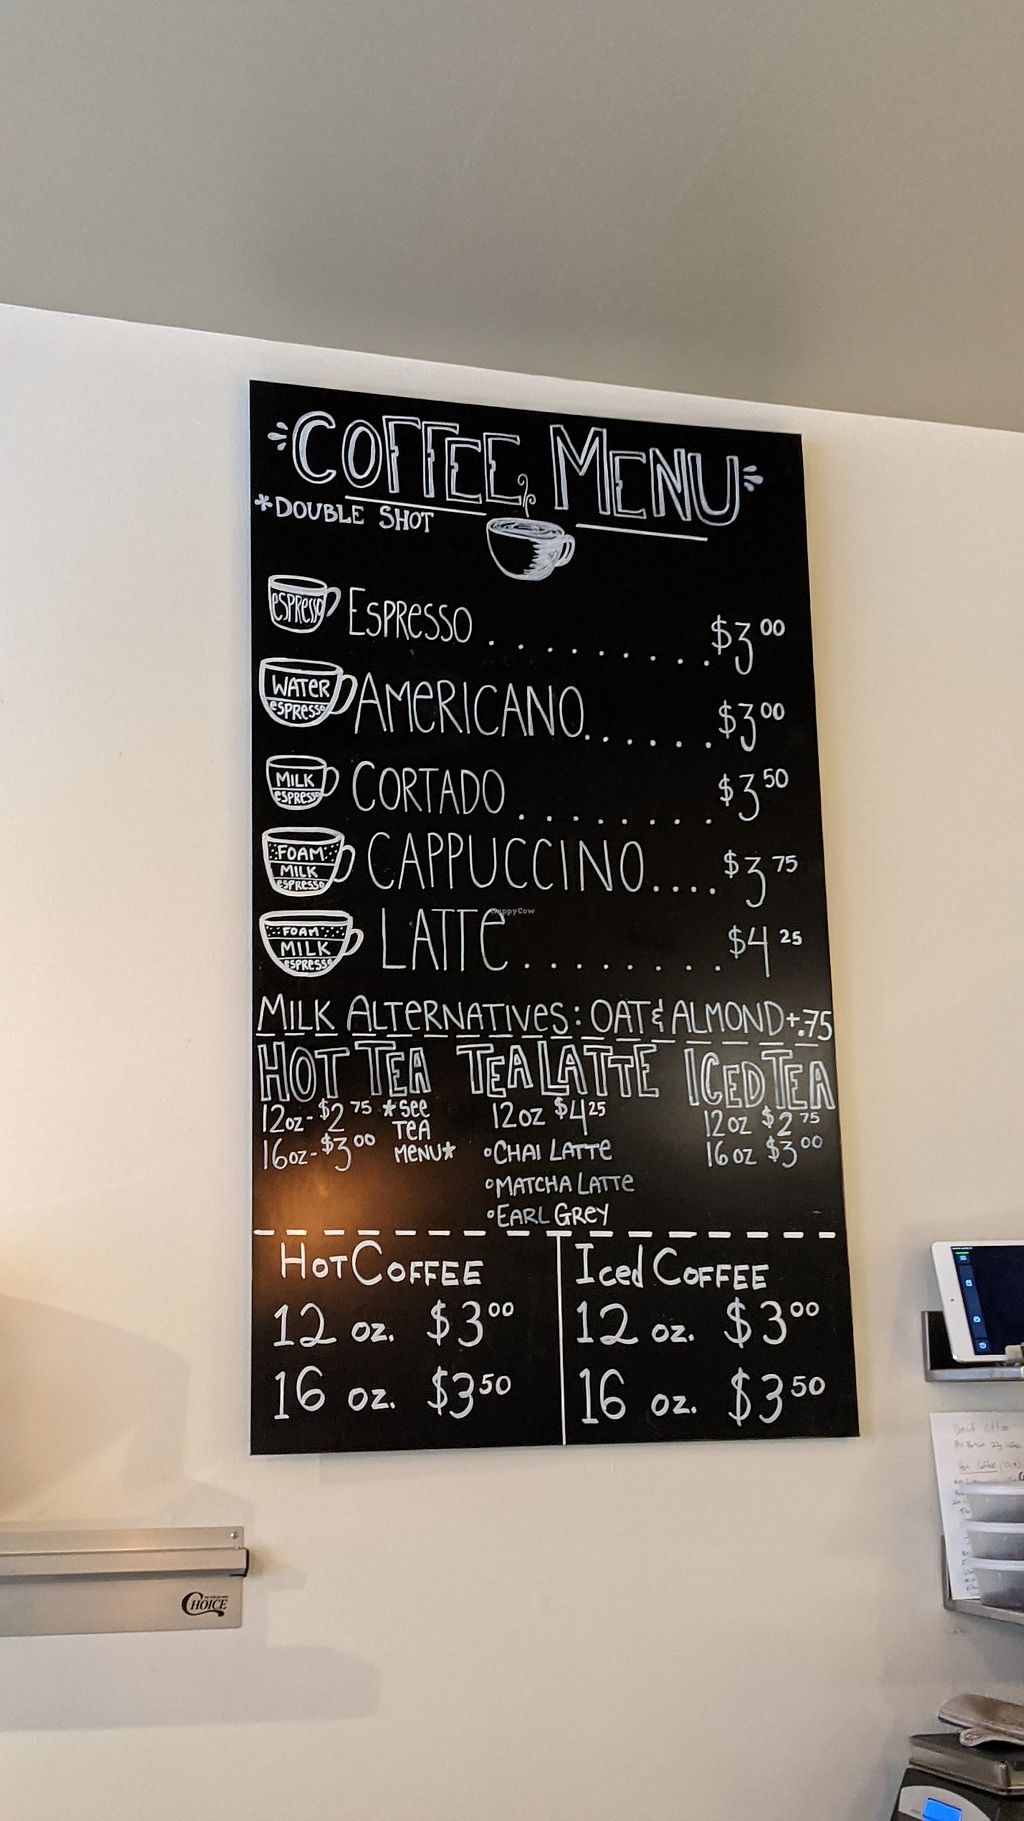 COFFEE MENU
*DOUBLE SHOT
ESPRESSO ESPRESSO . . . . . . . . . $3 00
WATER ESPRESSO AMERICANO. . . . . . $3 00
MILK ESPRESSO CORTADO . . . . . . . . $3 50
FOAM MILK ESPRESSO CAPPUCCINO. . . . $3 75
FOAM MILK ESPRESSO LATTE. . . . . . . . . $4 25
HappyCow
MILK ALTERNATIVES: OAT & ALMOND +.75
HOT TEA TEA LATTE ICED TEA
12oz- $2 75 *SEE 12oz $4 25 12oz $2 75
16oz- $3 00 TEA MENU* °CHAI LATTE 16oz $3 00
°MATCHA LATTE
°EARL GREY
HOT COFFEE Iced COFFEE
12 oz. $3 00 12 oz. $3 00
16 oz. $3 50 16 oz. $3 50
CHOICE